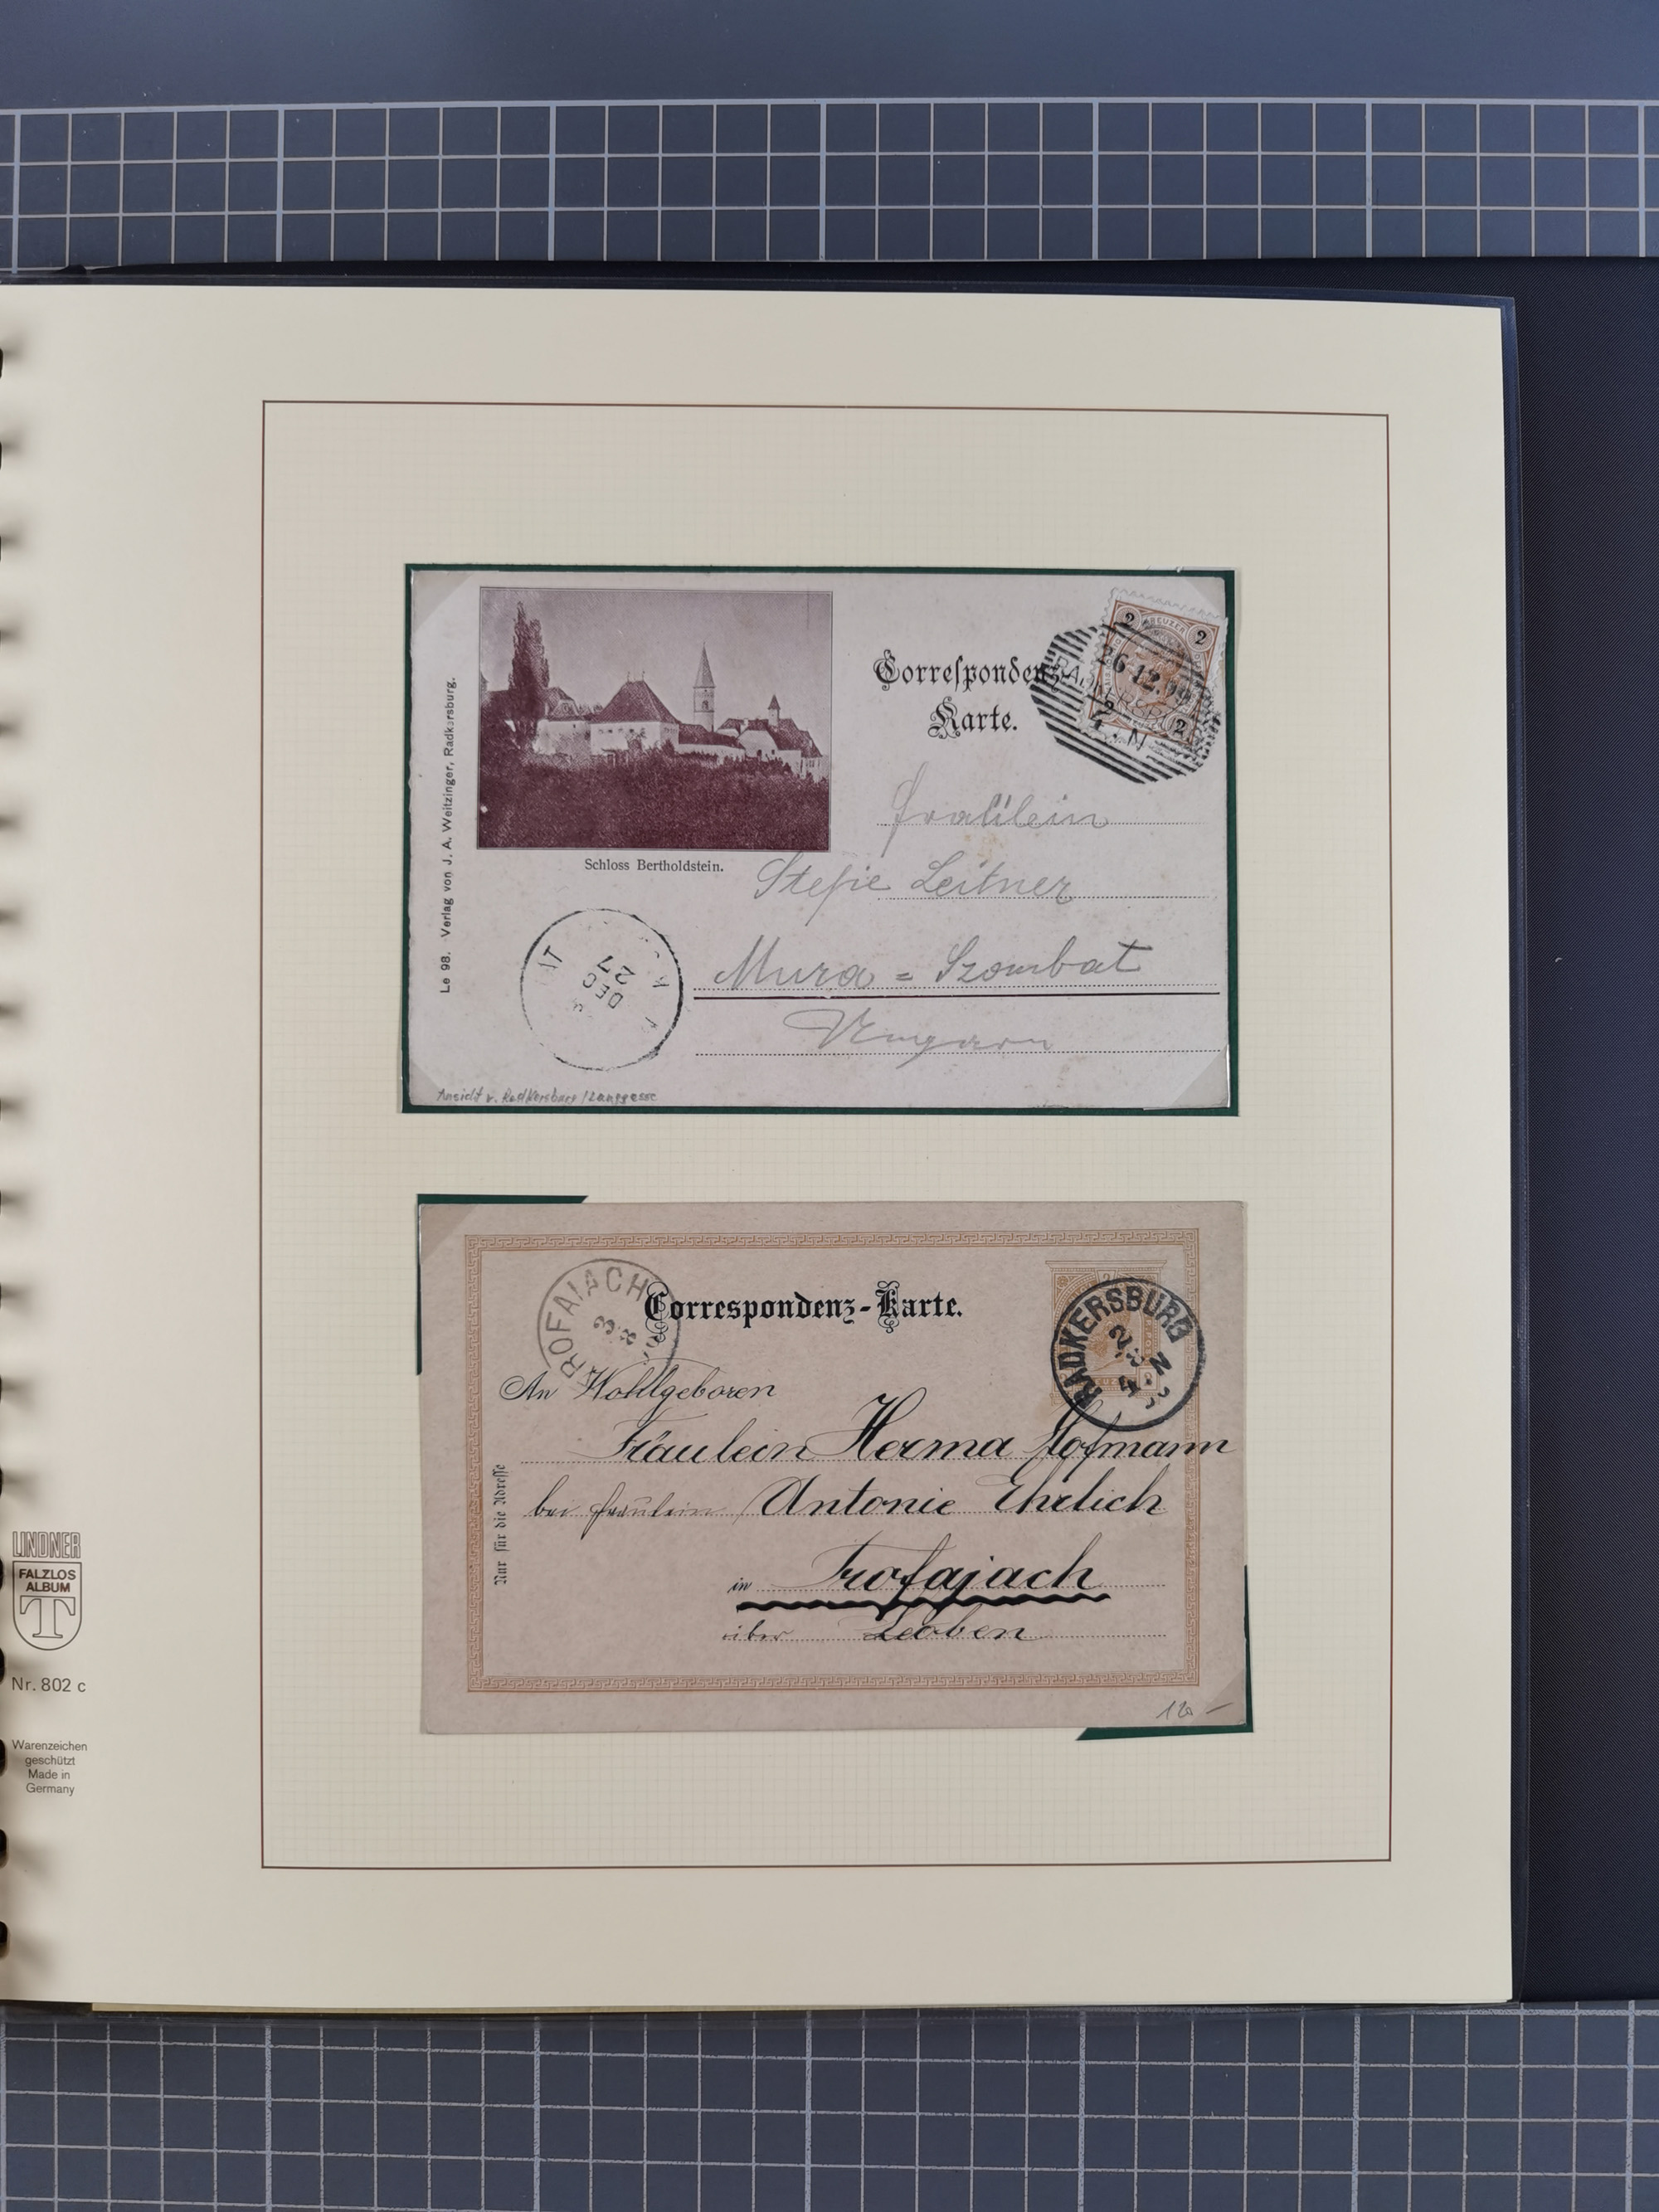 Le 98. Verlag von J. A. Weitzinger, Radkersburg.
Schloss Bertholdstein.
Correspondenz-
Karte.
2 KREUZER 2
26.12.99
2 2
4. N
Fraülein
Stefie Leitner
Mura = Szombat
Ungarn
AT
DEC
27
Ansicht v. Radkersburg / Langgasse
TROFAIACH
3 8
Correspondenz-Karte.
RADKERSBURG
2 8
4. N
An Wohlgeboren
Fräulein Herma Hofmann
bei Fräulein Antonie Ehrlich
in Trofajach
über Leoben
Nur für die Adresse
120 -
LINDNER
FALZLOS
ALBUM
T
Nr. 802 c
Warenzeichen
geschützt
Made in
Germany